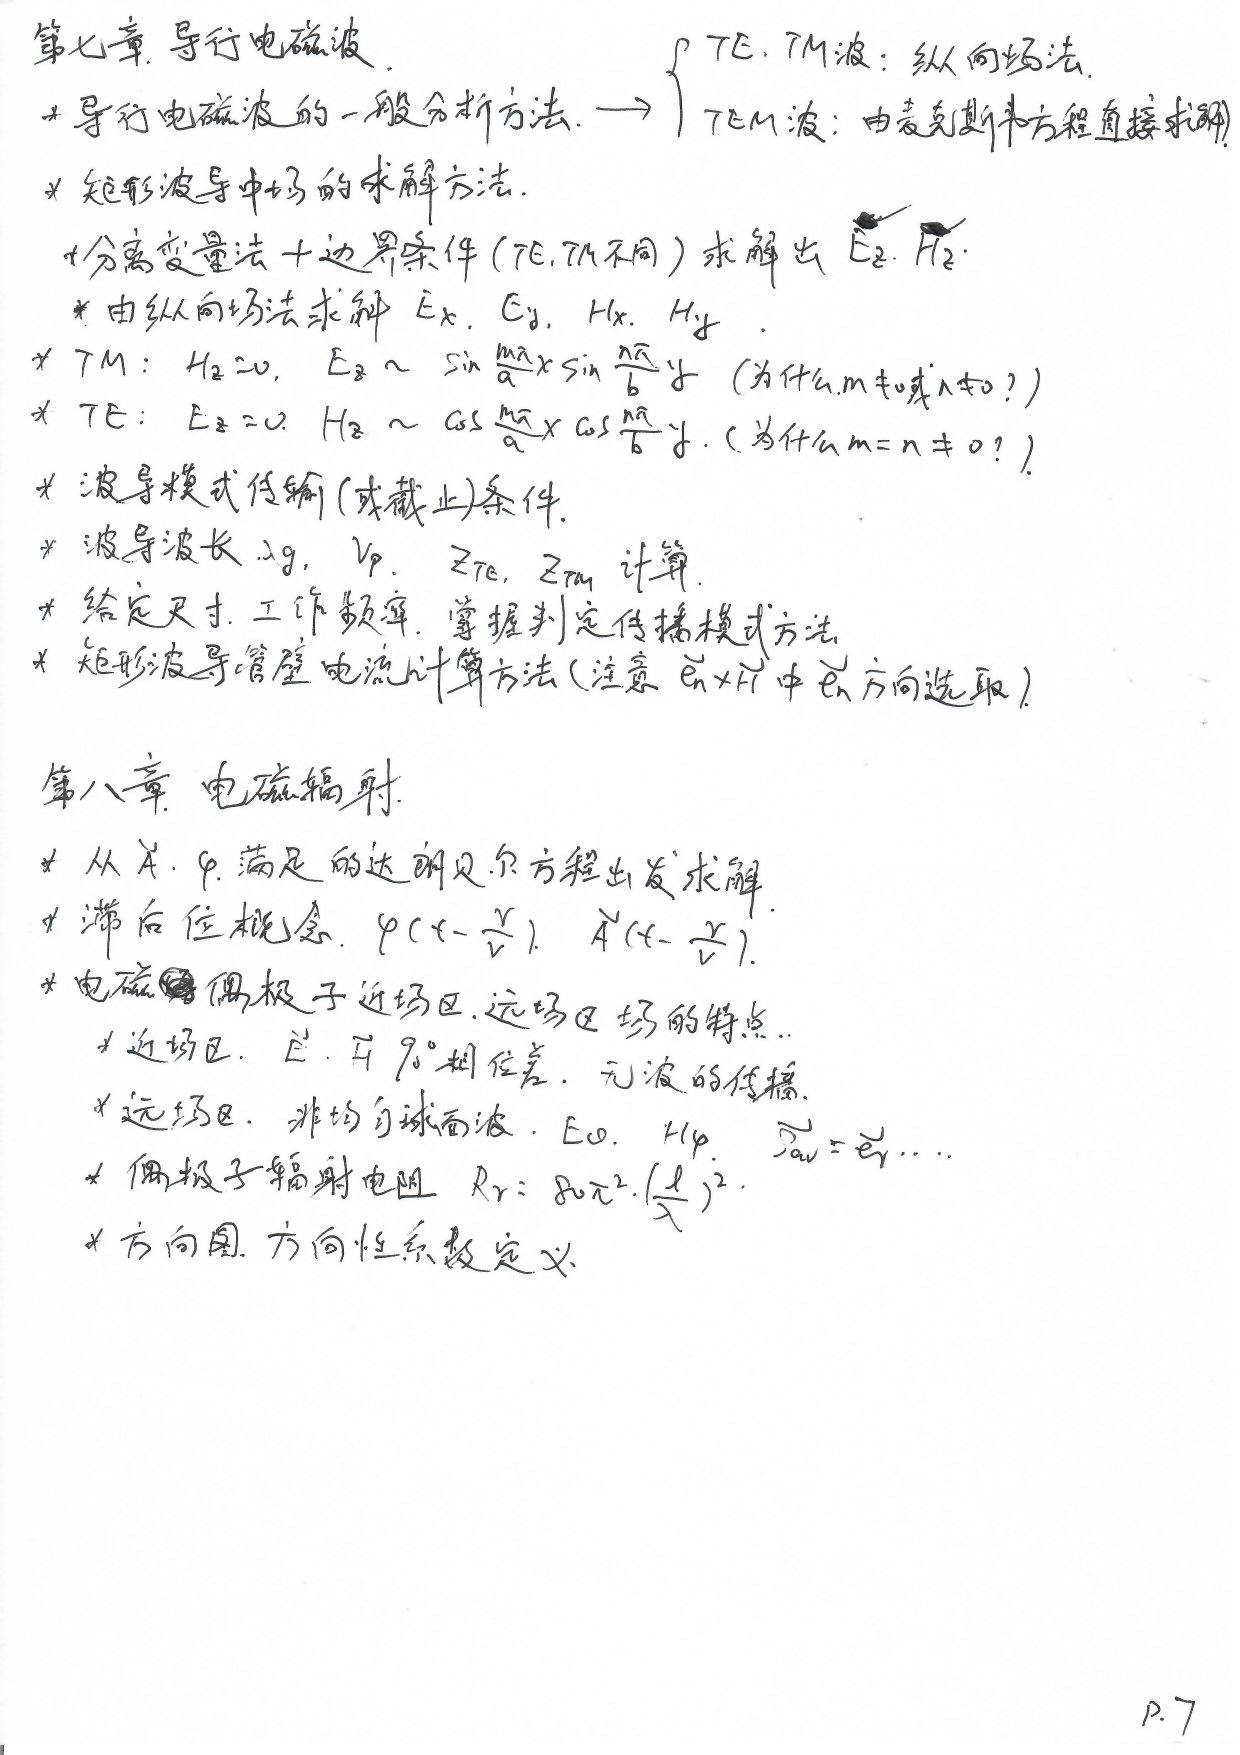 第七章 导行电磁波.
* 导行电磁波的一般分析方法. → { TE. TM波: 纵向场法.
TEM波: 由麦克斯韦方程直接求解)
* 矩形波导中场的求解方法.
* 分离变量法 + 边界条件 (TE, TM不同) 求解出 Ez. Hz.
* 由纵向场法求解 Ex. Ey. Hx. Hy.
* TM: Hz=0. Ez ~ sin mπ/a x sin nπ/b y (为什么 m≠0或n≠0?)
* TE: Ez=0. Hz ~ cos mπ/a x cos nπ/b y. (为什么 m=n≠0?).
* 波导模式传输(或截止)条件.
* 波导波长 λg, Vp. ZTE, ZTM 计算.
* 给定尺寸. 工作频率. 掌握判定传播模式方法.
* 矩形波导管壁电流计算方法 (注意 e⃗n×H⃗ 中 e⃗n 方向选取).
第八章 电磁辐射.
* 从 A⃗. φ. 满足的达朗贝尔方程出发求解.
* 滞后位概念. φ(t - r/v). A⃗(t - r/v).
* 电磁偶极子近场区. 远场区场的特点..
* 近场区. E⃗. H⃗ 90°相位差. 无波的传播.
* 远场区. 非均匀球面波. Eθ. Hφ. S⃗av = e⃗r ....
* 偶极子辐射电阻 Rr = 80π²·(l/λ)².
* 方向图. 方向性系数定义.
P.7